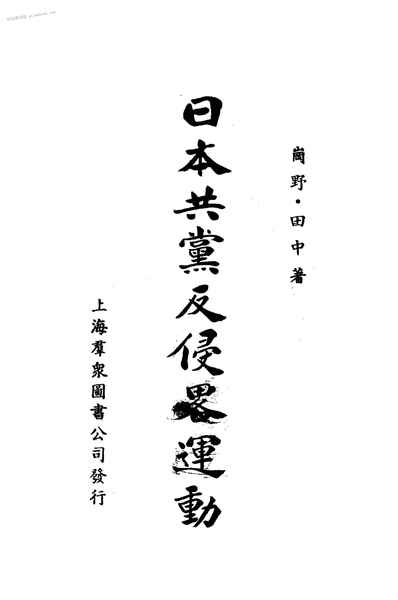 岡野·田中著
日本共黨反侵畧運動
上海羣衆圖書公司發行